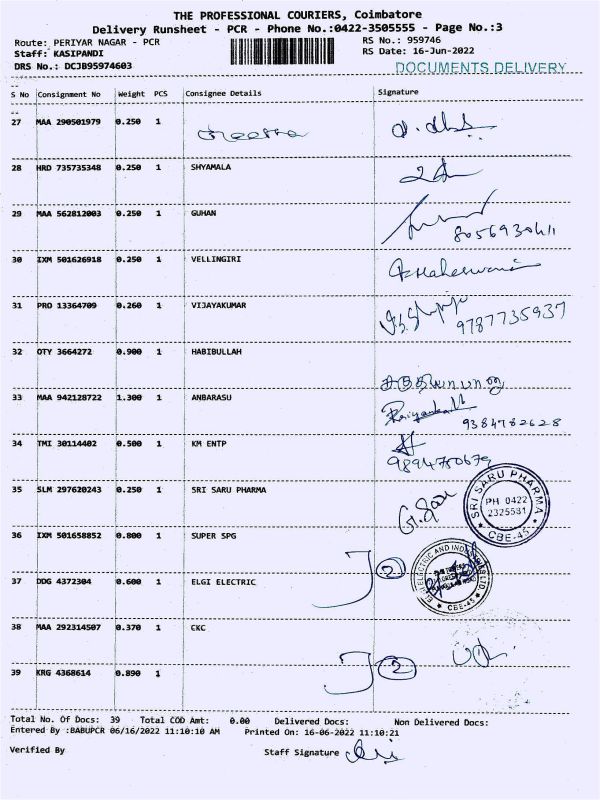 THE PROFESSIONAL COURIERS, Coimbatore
Delivery Runsheet - PCR - Phone No.:0422-3505555 - Page No.:3
Route: PERIYAR NAGAR - PCR
RS No.: 959746
Staff: KASIPANDI
RS Date: 16-Jun-2022
DRS No.: DCJB95974603
DOCUMENTS DELIVERY
S No Consignment No Weight PCS Consignee Details Signature
27 MAA 290501979 0.250 1
28 HRD 735735348 0.250 1 SHYAMALA
29 MAA 562812003 0.250 1 GUHAN
8056930411
30 IXM 501626918 0.250 1 VELLINGIRI
31 PRO 13364709 0.260 1 VIJAYAKUMAR
9787735937
32 OTY 3664272 0.900 1 HABIBULLAH
33 MAA 942128722 1.300 1 ANBARASU
9384782628
34 TMI 30114402 0.500 1 KM ENTP
9894780679
35 SLM 297620243 0.250 1 SRI SARU PHARMA
SRI SARU PHARMA
PH 0422
2325581
CBE-45
36 IXM 501658852 0.800 1 SUPER SPG
2
37 DDG 4372304 0.600 1 ELGI ELECTRIC
CBE-45
38 MAA 292314507 0.370 1 CKC
2
39 KRG 4368614 0.890 1
Total No. Of Docs: 39 Total COD Amt: 0.00 Delivered Docs: Non Delivered Docs:
Entered By :BABUPCR 06/16/2022 11:10:10 AM Printed On: 16-06-2022 11:10:21
Verified By Staff Signature